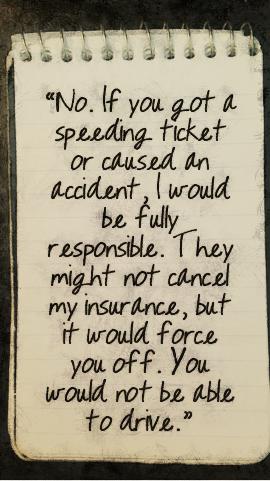 “No. If you got a
speeding ticket
or caused an
accident, I would
be fully
responsible. They
might not cancel
my insurance, but
it would force
you off. You
would not be able
to drive.”